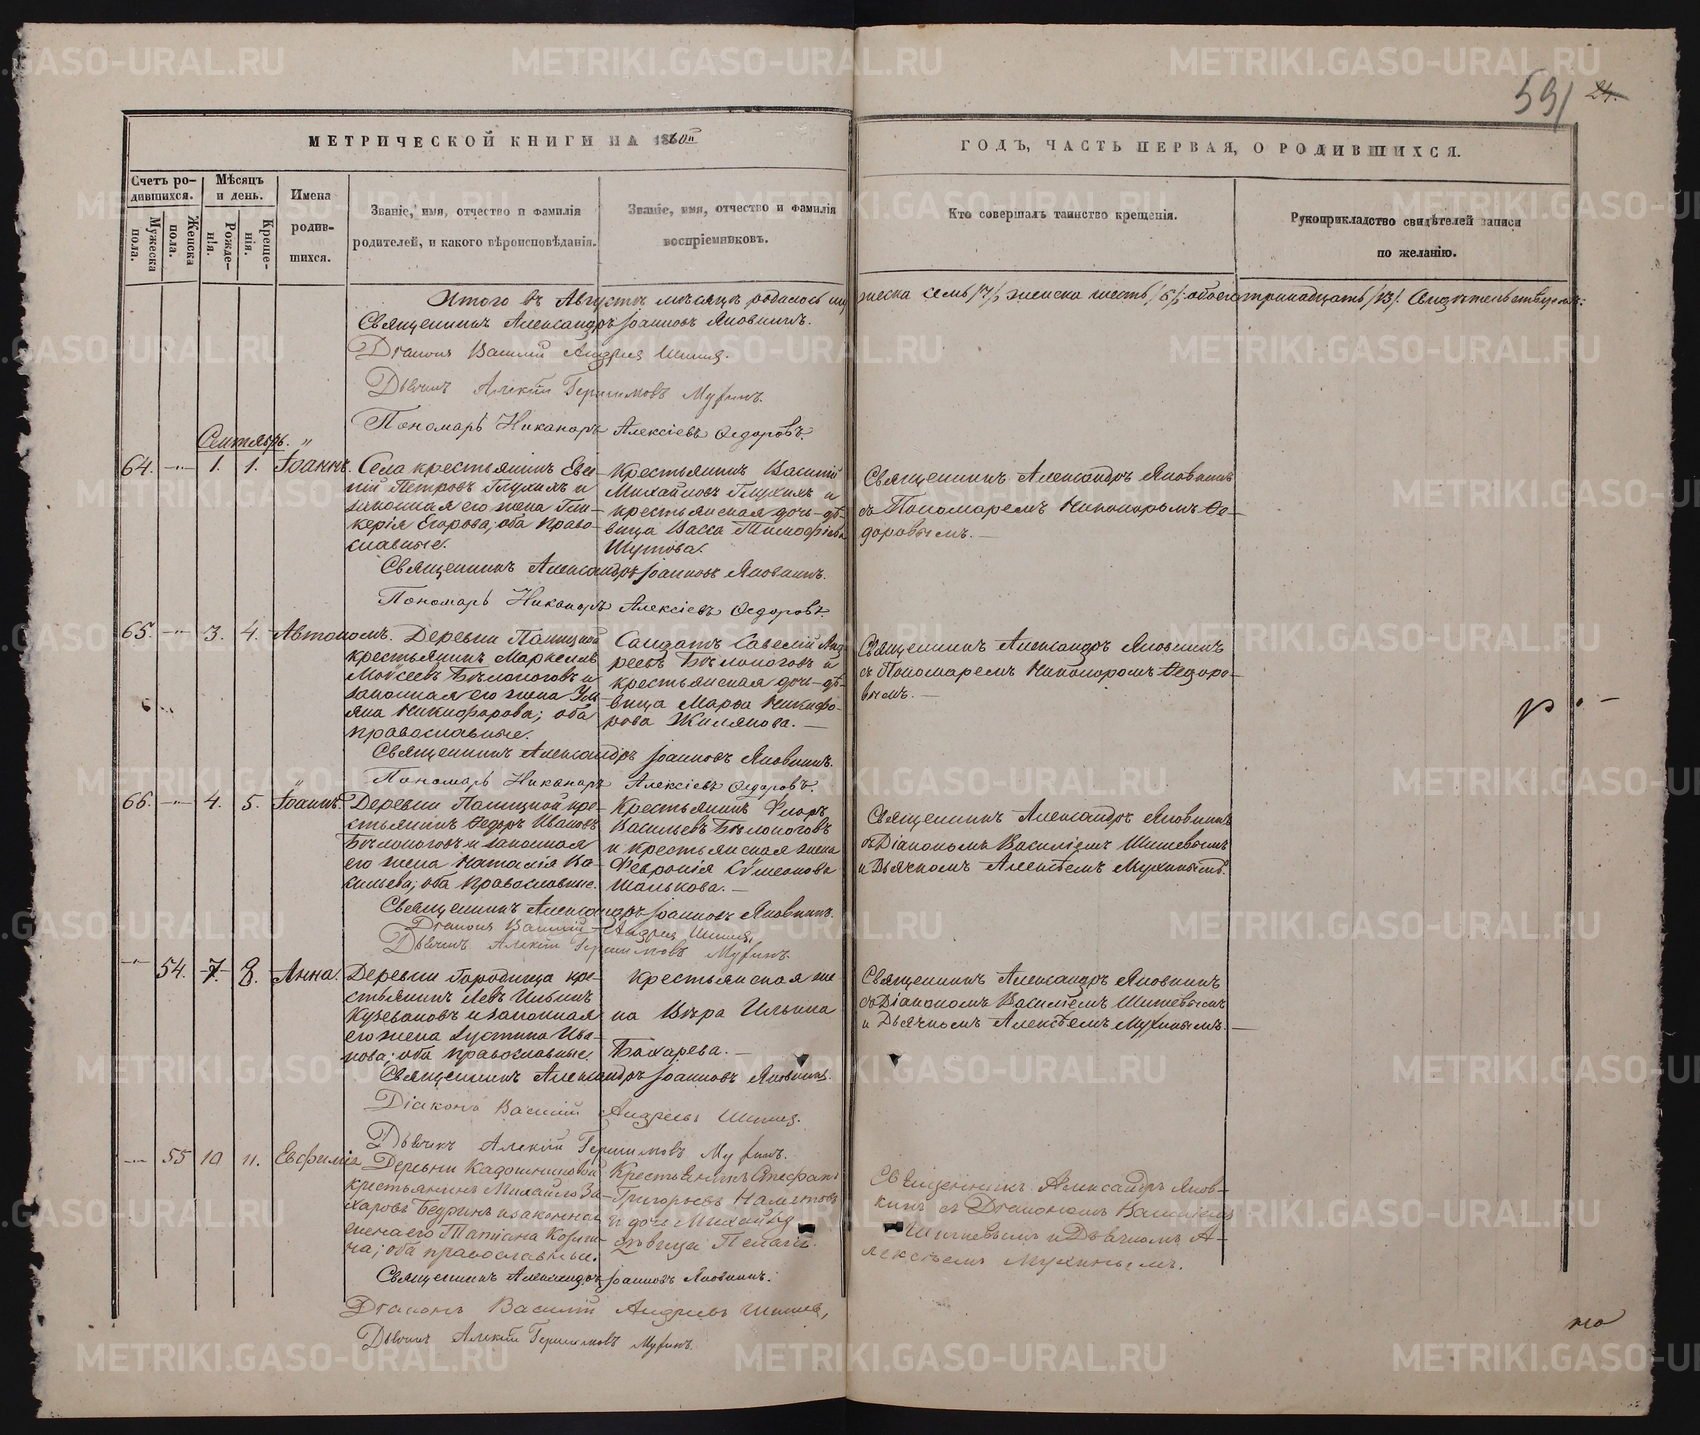 591 24.
МЕТРИЧЕСКОЙ КНИГИ НА 1860й
ГОДЪ, ЧАСТЬ ПЕРВАЯ, О РОДИВШИХСЯ.
Счетъ родившихся.
Мужеска пола.
Женска пола.
Мѣсяцъ и день.
Рожденія.
Крещенія.
Имена родившихся.
Званіе, имя, отчество и фамилія
родителей, и какого вѣроисповѣданія.
Званіе, имя, отчество и фамилія
воспріемниковъ.
Кто совершалъ таинство крещенія.
Рукоприкладство свидѣтелей записи
по желанію.
Итого въ Августѣ мѣсяцѣ родилось мужеска семь /7/, женска шесть /6/, обоего тринадцать /13/.
Священникъ Александръ Іоанновъ Яновкинъ.
Діаконъ Василій Андреевъ
Дьячекъ Алексій Герасимовъ Мухинъ.
Пономарь Никаноръ Алексіевъ Ѳедоровъ.
Сентябрь.
64. 1. 1. Іоаннъ.
Села крестьянинъ Евсе-
ній Петровъ Глухихъ и
законная его жена Гли-
керія Егорова, оба право-
славные.
Крестьянинъ Василій
Михайловъ Глухихъ и
крестьянская дочь-дѣ-
вица Васса Тимофѣева
Шутова.
Священникъ Александръ Яновкинъ
съ Пономаремъ Никаноромъ Ѳе-
доровымъ.
Священникъ Александръ Іоанновъ Яновкинъ.
Пономарь Никаноръ Алексіевъ Ѳедоровъ.
65. 3. 4. Автономъ.
Деревни Палицной
крестьянинъ Маркеллъ
Моѵсеевъ Бѣлоноговъ и
законная его жена Улі-
яна Никифорова; оба
православные.
Солдатъ Савелій Анд-
реевъ Бѣлоноговъ и
крестьянская дочь-дѣ-
вица Марѳа Никифо-
рова Жилякова.
Священникъ Александръ Яновкинъ
съ Пономаремъ Никаноромъ Ѳедоро-
вымъ.
Священникъ Александръ Іоанновъ Яновкинъ.
Пономарь Никаноръ Алексіевъ Ѳедоровъ.
66. 4. 5. Іоаннъ.
Деревни Палицной кре-
стьянинъ Ѳедоръ Ивановъ
Бѣлоноговъ и законная
его жена Наталія Ва-
сильева, оба православные.
Крестьянинъ Флоръ
Васильевъ Бѣлоноговъ
и крестьянская жена
Феѵронія Сѵмеонова
Шалькова.
Священникъ Александръ Яновкинъ
съ Діакономъ Василіемъ Шишевымъ
и Дьячкомъ Алексѣемъ Мухинымъ.
Священникъ Александръ Іоанновъ Яновкинъ.
Діаконъ Василій Андреевъ
Дьячекъ Алексій Герасимовъ Мухинъ.
54. 7. 8. Анна.
Деревни Городища кре-
стьянинъ Левъ Ильинъ
и законная
его жена Іустина Ива-
нова; оба православные.
Крестьянская же-
на Вѣра Ильина
Бахарева.
Священникъ Александръ Яновкинъ
съ Діакономъ Василіемъ Шишевымъ
и Дьячкомъ Алексѣемъ Мухинымъ.
Священникъ Александръ Іоанновъ Яновкинъ.
Діаконъ Василій Андреевъ
Дьячекъ Алексій Герасимовъ Мухинъ.
55 10 11. Евфимія
Деревни Кадошниковой
крестьянинъ Михайло За-
харовъ и законная
жена его Татіана Козми-
на; оба православные.
Крестьянинъ Стефанъ
Григорьевъ
и дочь Михайла
дѣвица Пелагія.
Священникъ Александръ Янов-
кинъ съ Діакономъ Василіемъ
Шишевымъ и Дьячкомъ А-
лексѣемъ Мухинымъ.
Священникъ Александръ Іоанновъ Яновкинъ.
Діаконъ Василій Андреевъ
Дьячекъ Алексій Герасимовъ Мухинъ.
METRIKI.GASO-URAL.RU